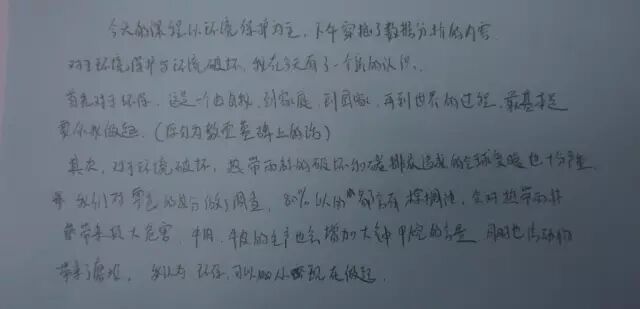 今天的课程以环境保护为主，下午穿插了数据分析的内容
对于环境保护与环境破坏，我在今天有了一个新的认识。
首先对于环保，这是一个由自我，到家庭，到国家，再到世界的过程，最基本是
要从我做起。（你的为数学基础上的话）
其次，对于环境破坏，热带雨林的破坏和碳排放造成的全球变暖也十分严重
我们对零食的成分做了调查，80%以的都含有棕榈油，会对热带雨林
带来极大危害，牛肉、牛皮的生产也会增加大气中甲烷的含量 同时也给动物
带来了磨难，我认为环保，可以从小现在做起.